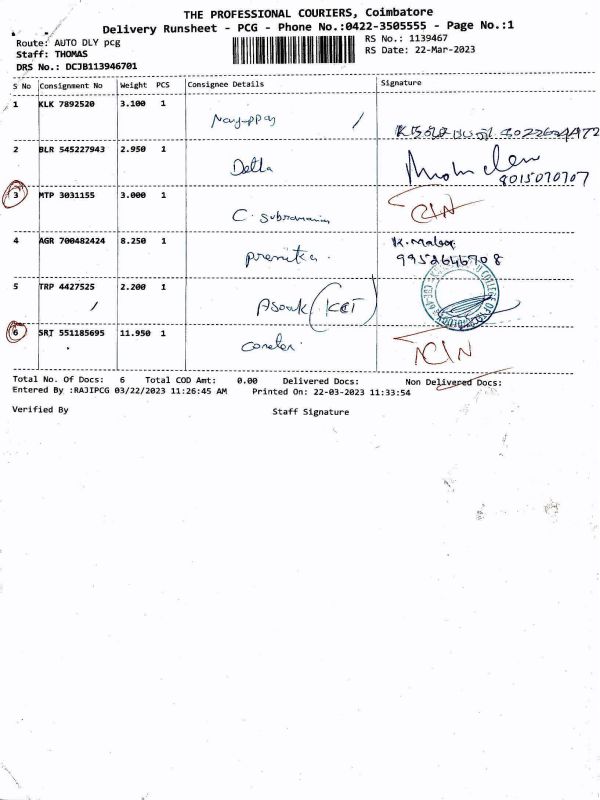 THE PROFESSIONAL COURIERS, Coimbatore
Delivery Runsheet - PCG - Phone No.:0422-3505555 - Page No.:1
Route: AUTO DLY pcg
RS No.: 1139467
Staff: THOMAS
RS Date: 22-Mar-2023
DRS No.: DCJB113946701
S No Consignment No Weight PCS Consignee Details Signature
1 KLK 7892520 3.100 1
2 BLR 545227943 2.950 1 Della
8015070707
3 MTP 3031155 3.000 1 C. Subramanim
4 AGR 700482424 8.250 1 K. Mala
9952646708
5 TRP 4427525 2.200 1 Asouk (KCT)
6 SRT 551185695 11.950 1
Total No. Of Docs: 6 Total COD Amt: 0.00 Delivered Docs: Non Delivered Docs:
Entered By :RAJIPCG 03/22/2023 11:26:45 AM Printed On: 22-03-2023 11:33:54
Verified By Staff Signature